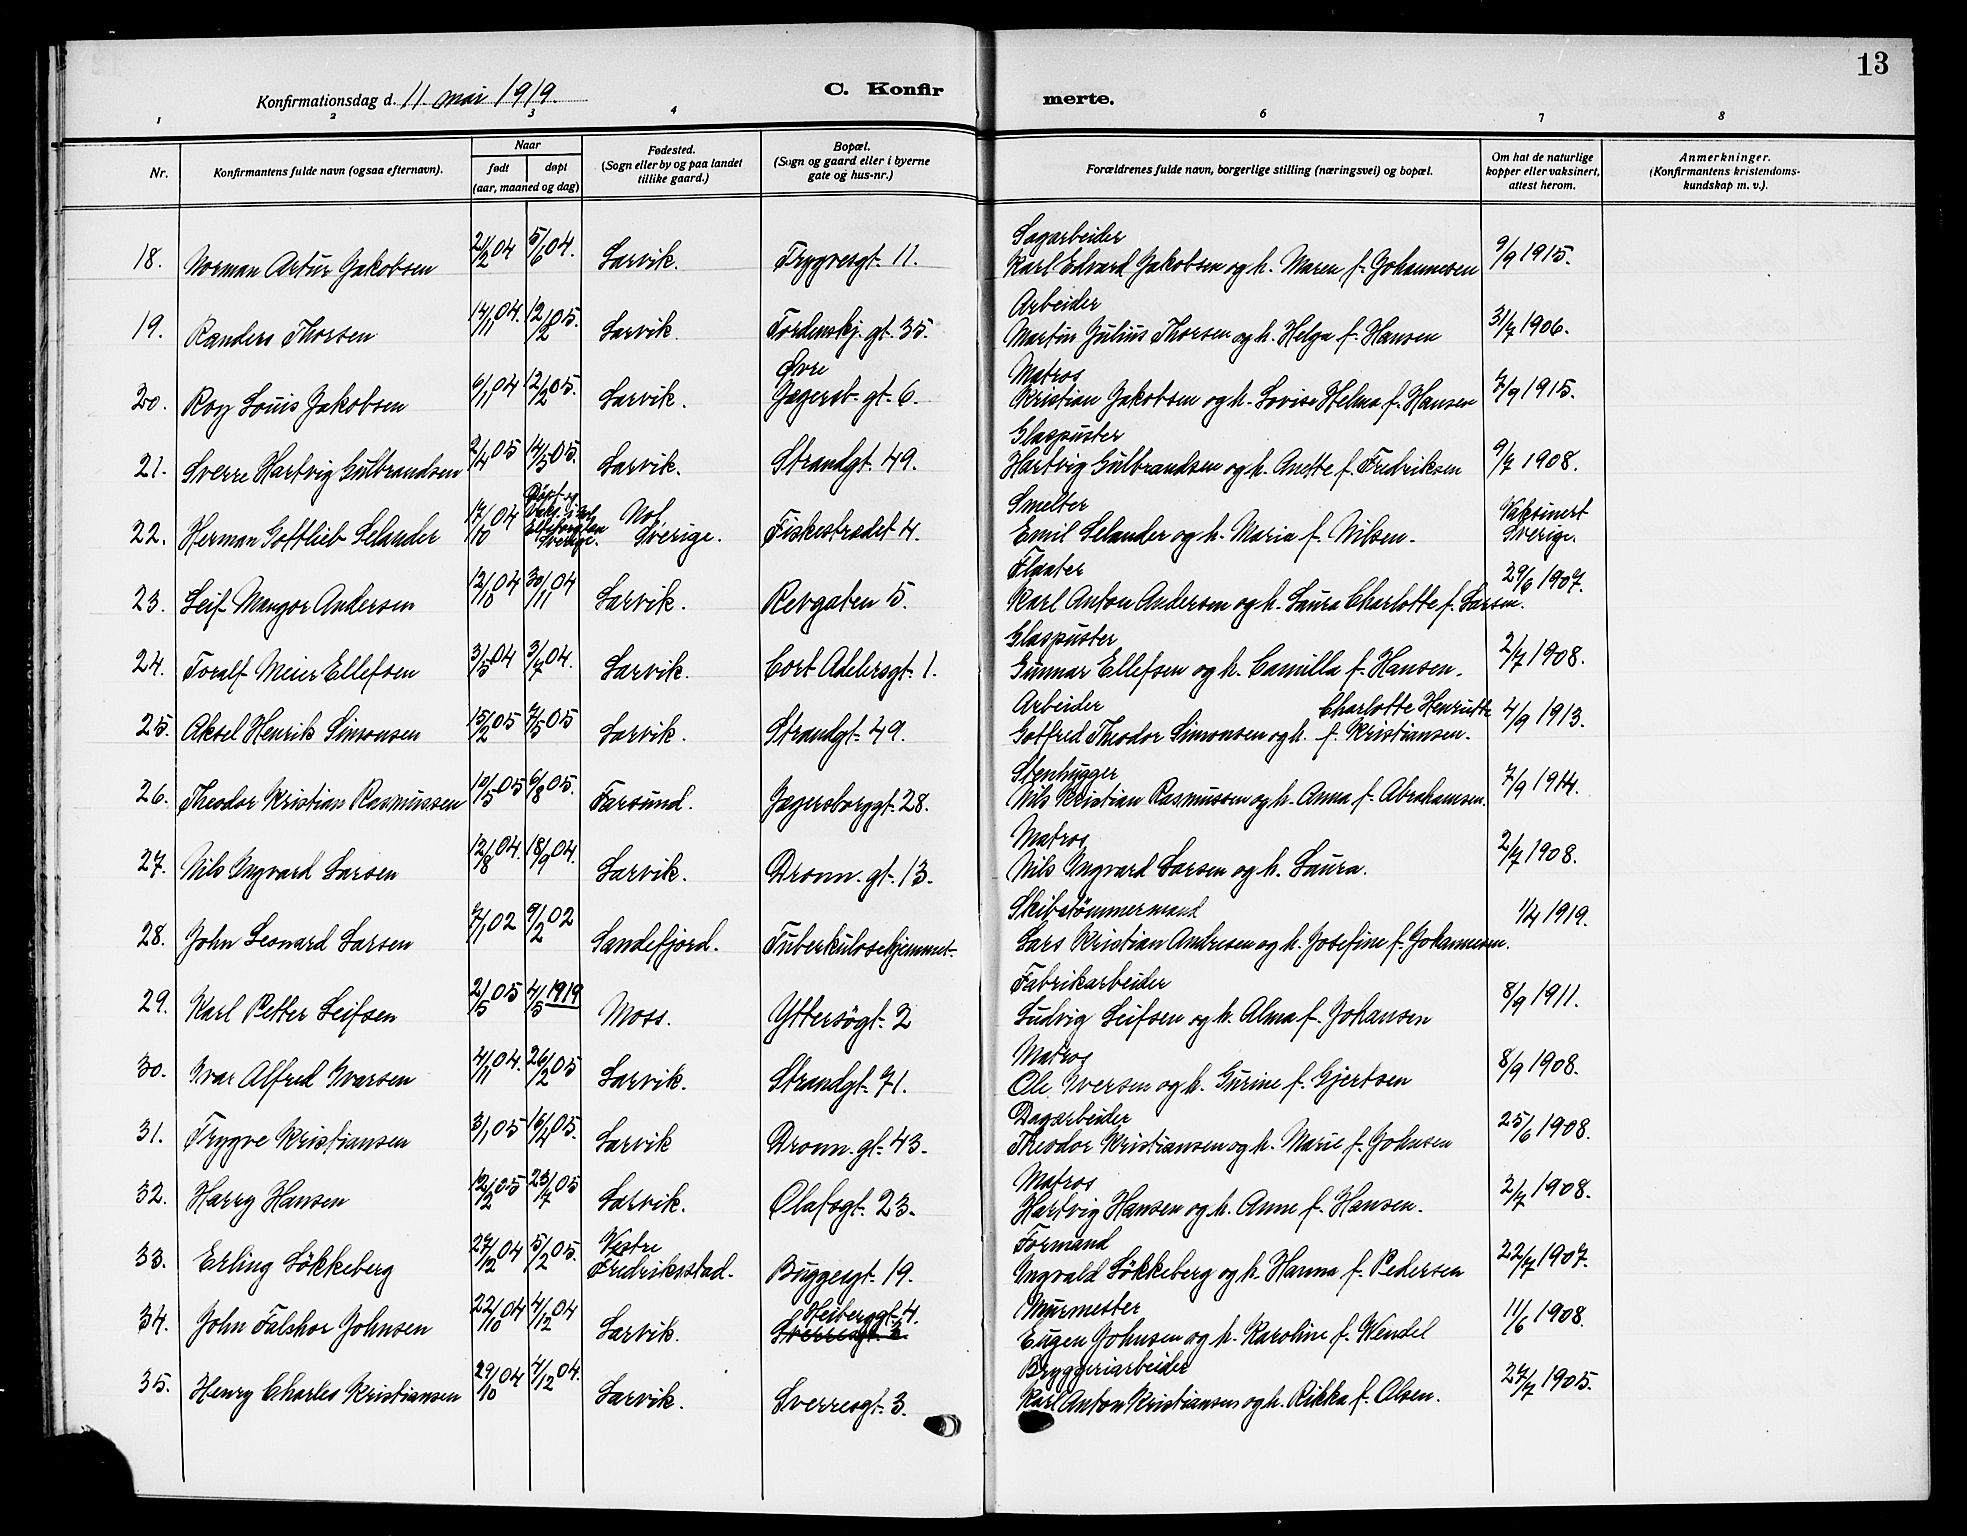 13
Konfirmationsdag d. 11. mai 1919.
C. Konfir
merte.
1 2 3 4 6 7 8
Nr.
Konfirmantens fulde navn (ogsaa efternavn).
Naar
født døpt
(aar, maaned og dag)
Fødested.
(Sogn eller by og paa landet
tillike gaard.)
Bopæl.
(Sogn og gaard eller i byerne
gate og hus-nr.)
Forældrenes fulde navn, borgerlige stilling (næringsvei) og bopæl.
Om hat de naturlige
kopper eller vaksinert,
attest herom.
Anmerkninger.
(Konfirmantens kristendoms-
kundskap m. v.).
Sagarbeider
18. Norman Artur Jakobsen 21/2 04 5/6 04. Larvik. Trygvesgt. 11. Karl Edvard Jakobsen og h. Maren f. Johannesen 9/9 1915.
Arbeider
19. Randers Thorsen 14/11 04. 12/2 05. Larvik. Tordenskj. gt. 35. Martin Julius Thorsen og h. Helga f. Hansen 31/7 1906.
Øvre Matros
20. Roy Louis Jakobsen 6/11 04 12/2 05. Larvik. Jegersb. gt. 6. Kristian Jakobsen og h. Lovise Helma f. Hansen 7/9 1915.
Glaspuster
21. Sverre Hartvig Gulbrandsen 2/4 05 14/5 05. Larvik. Strandgt. 49. Hartvig Gulbrandsen og h. Anette f. Fredriksen 9/7 1908.
Døpt og Smelter Vaksinert
22. Herman Gottlieb Selander 17/10 04 Sverige. Nol, Sverige. Fiskestrædet 4. Emil Selander og h. Maria f. Nilsen. Sverige.
Fløter
23. Leif Mangor Andersen 12/10 04 30/11 04 Larvik. Revgaten 5. Karl Anton Andersen og h. Laura Charlotte f. Larsen. 29/6 1907.
Glaspuster
24. Toralf Meier Ellefsen 3/5 04 3/7 04. Larvik. Cort Adelersgt. 1. Gunnar Ellefsen og h. Camilla f. Hansen. 2/7 1908.
Arbeider Charlotte Henriette
25. Aksel Henrik Simonsen 15/2 05 7/5 05 Larvik. Strandgt. 49. Gotfred Theodor Simonsen og h. f. Kristiansen. 4/9 1913.
Stenhugger
26. Theodor Kristian Rasmussen 10/5 05 6/8 05. Farsund. Jegersborggt. 28. Nils Kristian Rasmussen og h. Anna f. Abrahamsen. 7/9 1914.
Matros
27. Nils Ingvard Larsen 12/8 04. 18/9 04. Larvik. Dronn. gt. 13. Nils Ingvard Larsen og h. Laura. 2/7 1908.
Skibstømmermand
28. John Leonard Larsen 7/1 02 9/2 02 Sandefjord. Tuberkulosehjemmet. Lars Kristian Andresen og h. Josefine f. Johannesen. 1/4 1919.
Fabrikarbeider
29. Karl Petter Leifsen 2/5 05 4/5 1919 Moss. Yttersögt. 2 Ludvig Leifsen og h. Alma f. Johansen 8/9 1911.
Matros
30. Ivar Alfred Ivarsen 4/11 04. 26/2 05 Larvik. Strandgt. 71. Ole Iversen og h. Gurine f. Gjertsen 8/9 1908.
Dagarbeider
31. Trygve Kristiansen 3/1 05 16/4 05. Larvik Dronn. gt. 43. Theodor Kristiansen og h. Marie f. Johnsen 25/6 1908.
Matros
32. Harry Hansen 12/2 05 23/7 05 Larvik. Olafsgt. 23. Hartvig Hansen og h. Anne f. Hansen. 2/7 1908.
Vestre Formand
33. Erling Løkkeberg 27/12 04 5/2 05. Fredriksstad. Buggesgt. 19. Ingvald Løkkeberg og h. Hanna f. Pedersen 22/7 1907.
Heiberggt. 4. Murmester
34. John Falshor Johnsen 22/10 04 4/12 04 Larvik. Sverresgt. 3. Eugen Johnsen og h. Karoline f. Wendel 11/6 1908.
Bryggeriarbeider
35. Henry Charles Kristiansen 29/10 04 4/12 04. Larvik. Sverresgt. 3. Karl Anton Kristiansen og h. Rikka f. Olsen. 27/7 1905.